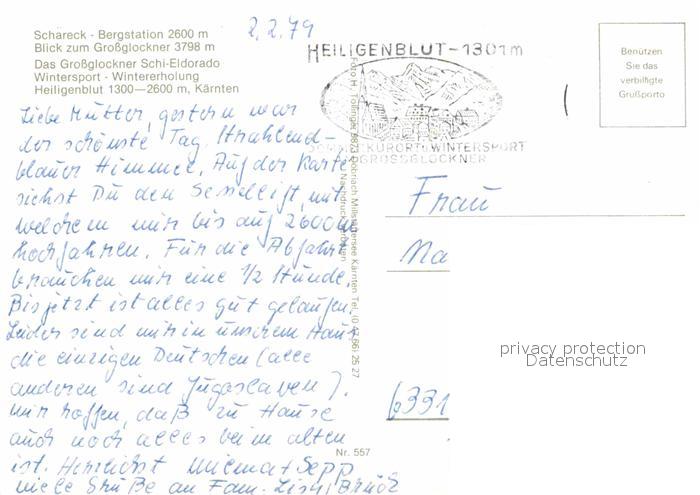 2.2.79
Schareck - Bergstation 2600 m
Blick zum Großglockner 3798 m
Das Großglockner Schi-Eldorado
Wintersport - Wintererholung
Heiligenblut 1300—2600 m, Kärnten
HEILIGENBLUT-1301m
KURORT u WINTERSPORT
GROSSGLOCKNER
Benützen
Sie das
verbilligte
Grußporto
Liebe Mutter, gestern war
der schönste Tag. Strahlend-
blauer Himmel. Auf der Karte
siehst Du den Sessellift, mit
welchem wir bis auf 2600m
hochfahren. Für die Abfahrt
brauchen wir eine 1/2 Stunde.
Bis jetzt ist alles gut gelaufen.
Leider sind wir in unserem Haus
die einzigen Deutschen (alle
anderen sind Jugoslaven).
Wir hoffen, daß zu Hause
auch noch alles beim alten
ist. Herzlichst + Sepp
viele Grüße an Fam.
Frau
Na
6331
privacy protection
Datenschutz
Nr. 557
Döbriach Millstättersee Kärnten Tel.
Nachdruck verboten